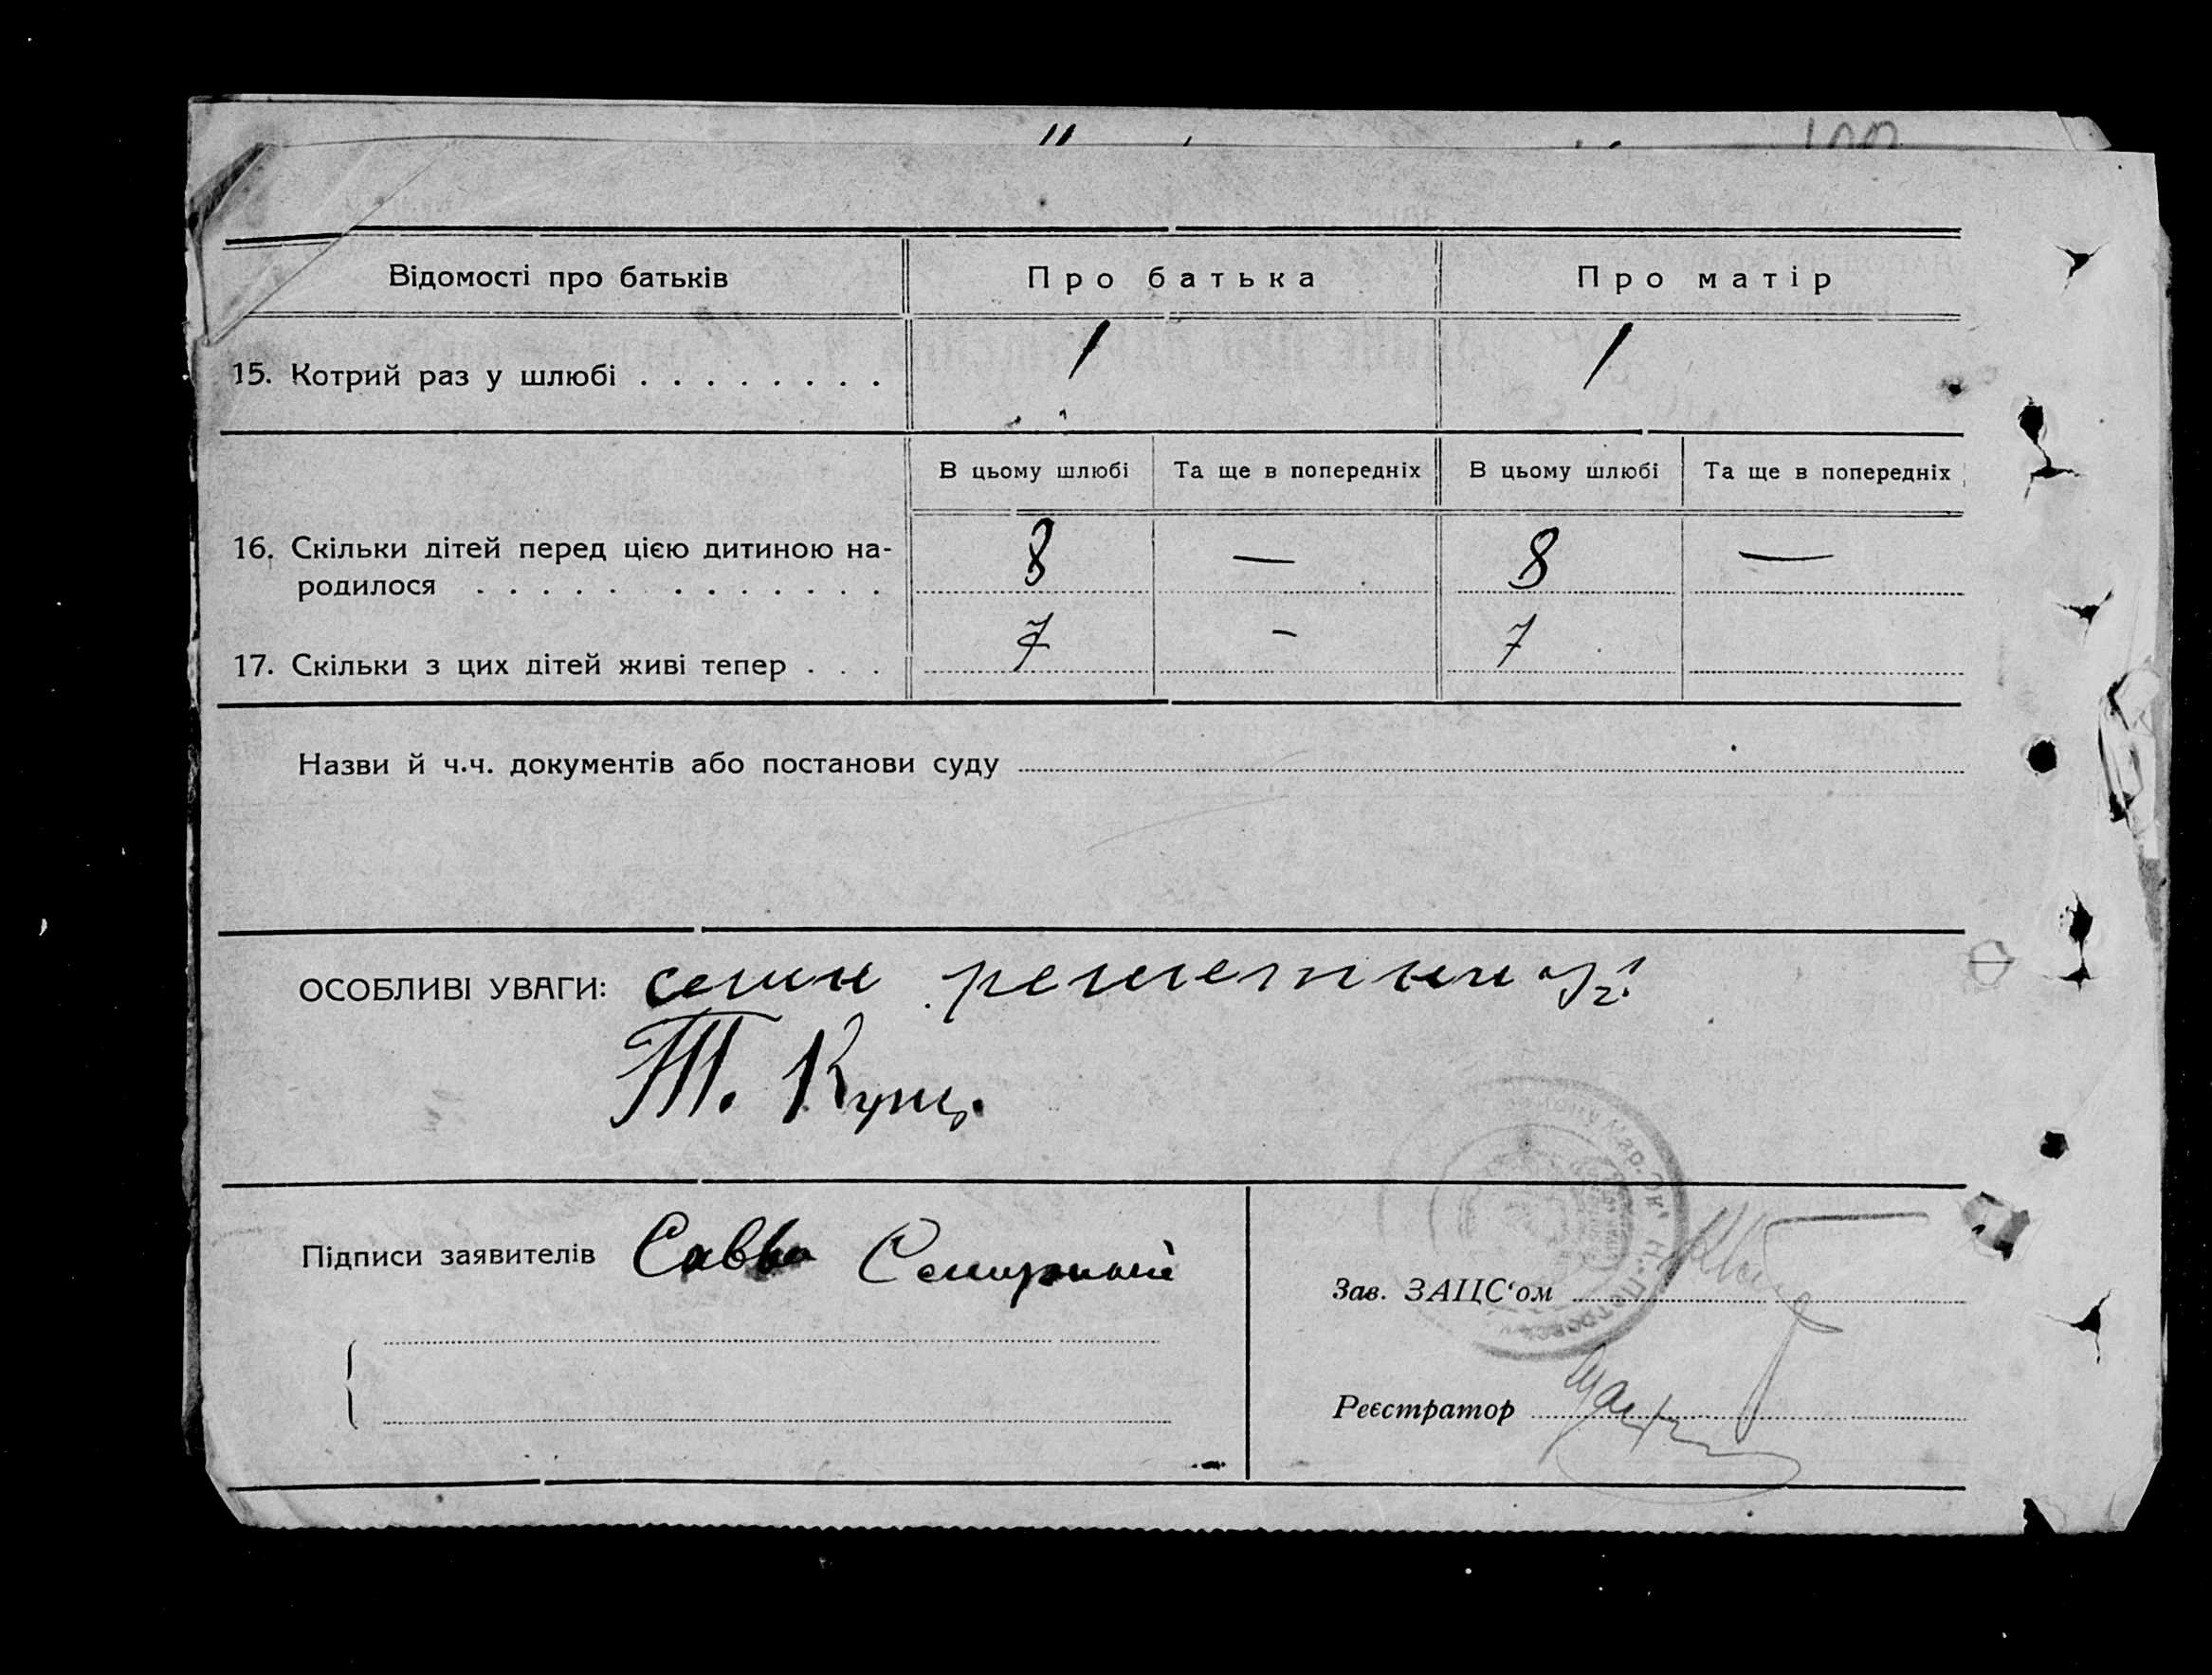 100
Відомості про батьків Про батька Про матір
15. Котрий раз у шлюбі . . . . . . . . 1 1
В цьому шлюбі Та ще в попередніх В цьому шлюбі Та ще в попередніх
16. Скільки дітей перед цією дитиною на-
родилося . . . . . . . . . . . . . 8 — 8 —
17. Скільки з цих дітей живі тепер . . . 7 - 7
Назви й ч.ч. документів або постанови суду
ОСОБЛИВІ УВАГИ:
Т. Кунц.
Підписи заявителів Савва
Зав. ЗАЦС‘ом
Реєстратор